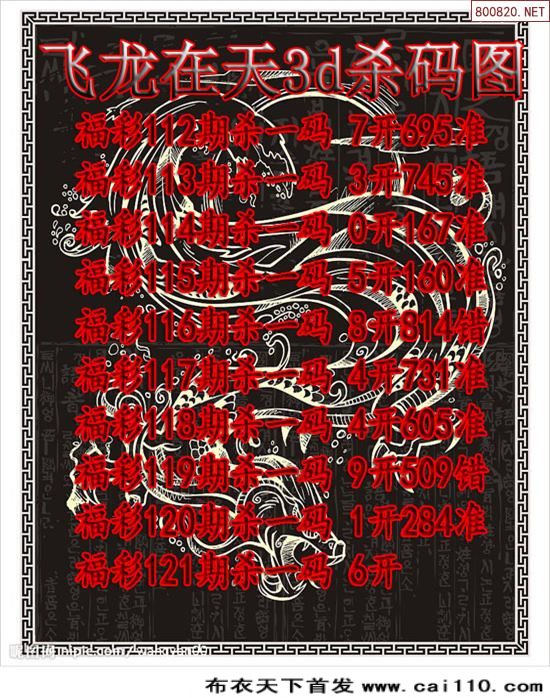 800820.NET
飞龙在天3d杀码图
福彩112期杀一码 7开695准
福彩113期杀一码 3开745准
福彩114期杀一码 0开167准
福彩115期杀一码 5开160准
福彩116期杀一码 8开814错
福彩117期杀一码 4开731准
福彩118期杀一码 4开605准
福彩119期杀一码 9开509错
福彩120期杀一码 1开284准
福彩121期杀一码 6开
布衣天下首发 www.cai110.com